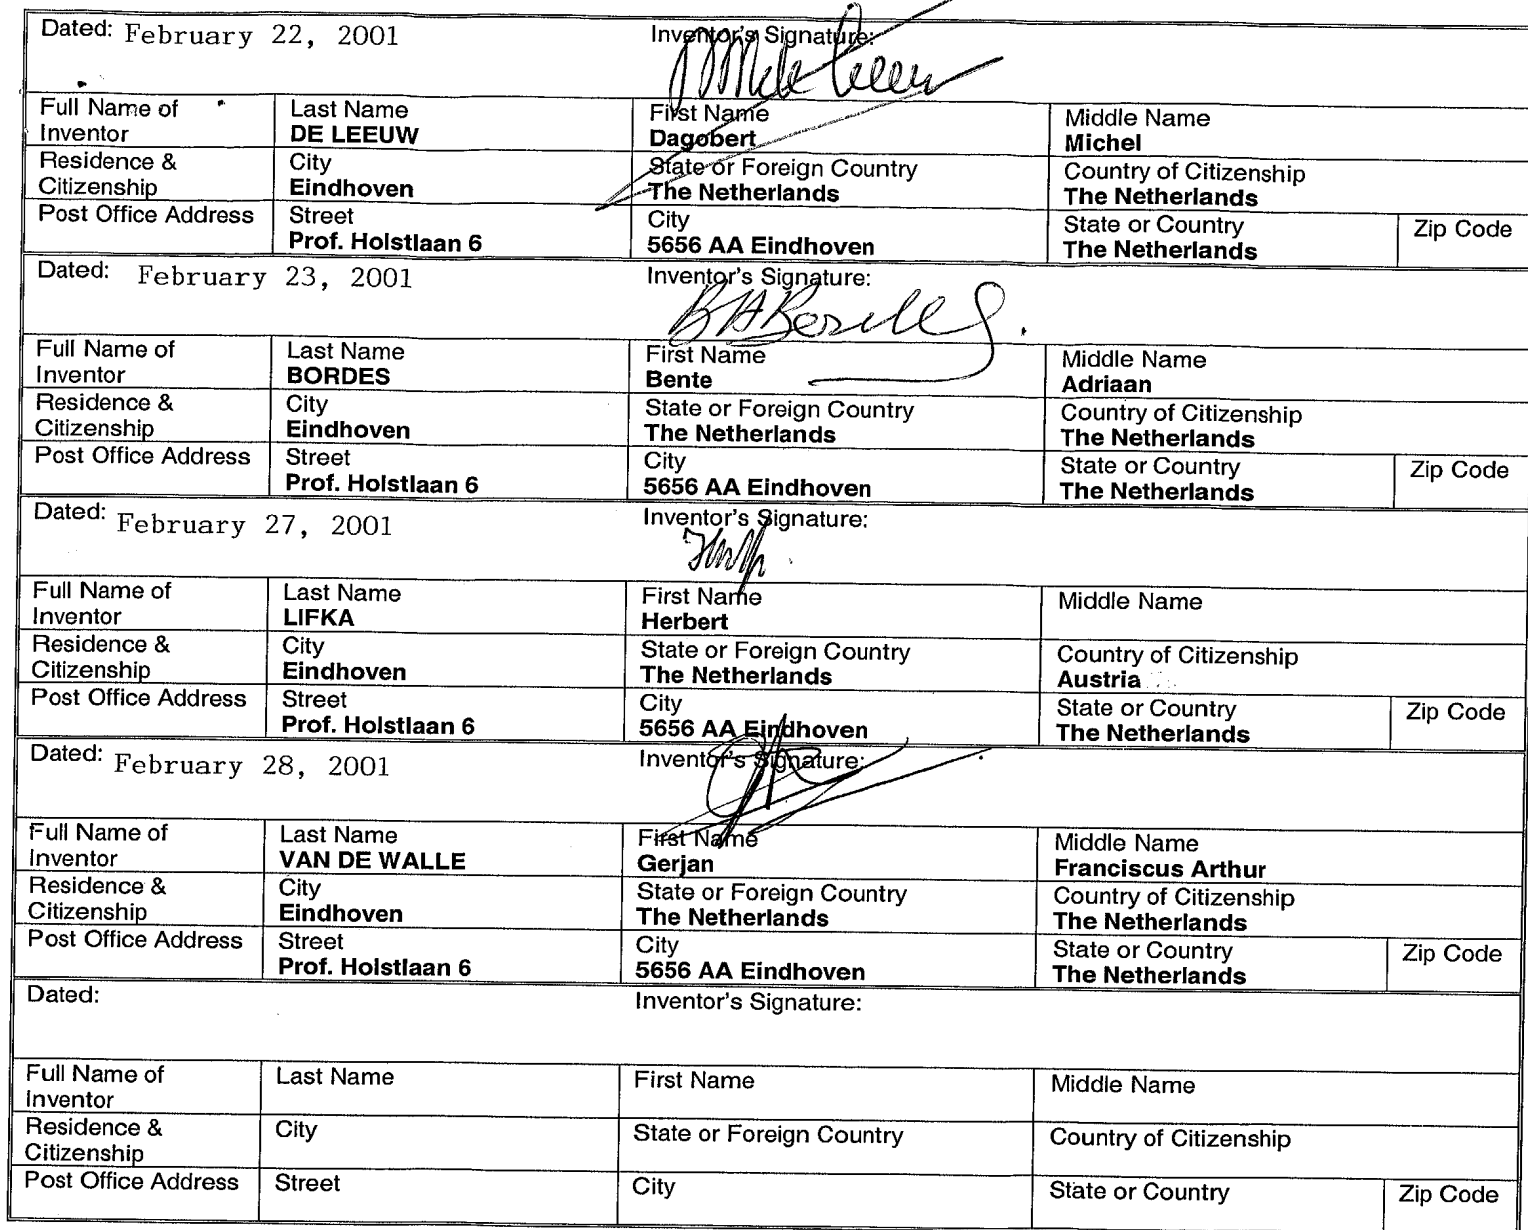 Dated: February 22, 2001 Inventor's Signature:
Full Name of Inventor Last Name DE LEEUW First Name Dagobert Middle Name Michel
Residence & Citizenship City Eindhoven State or Foreign Country The Netherlands Country of Citizenship The Netherlands
Post Office Address Street Prof. Holstlaan 6 City 5656 AA Eindhoven State or Country The Netherlands Zip Code
Dated: February 23, 2001 Inventor's Signature:
Full Name of Inventor Last Name BORDES First Name Bente Middle Name Adriaan
Residence & Citizenship City Eindhoven State or Foreign Country The Netherlands Country of Citizenship The Netherlands
Post Office Address Street Prof. Holstlaan 6 City 5656 AA Eindhoven State or Country The Netherlands Zip Code
Dated: February 27, 2001 Inventor's Signature:
Full Name of Inventor Last Name LIFKA First Name Herbert Middle Name
Residence & Citizenship City Eindhoven State or Foreign Country The Netherlands Country of Citizenship Austria
Post Office Address Street Prof. Holstlaan 6 City 5656 AA Eindhoven State or Country The Netherlands Zip Code
Dated: February 28, 2001 Inventor's Signature:
Full Name of Inventor Last Name VAN DE WALLE First Name Gerjan Middle Name Franciscus Arthur
Residence & Citizenship City Eindhoven State or Foreign Country The Netherlands Country of Citizenship The Netherlands
Post Office Address Street Prof. Holstlaan 6 City 5656 AA Eindhoven State or Country The Netherlands Zip Code
Dated: Inventor's Signature:
Full Name of Inventor Last Name First Name Middle Name
Residence & Citizenship City State or Foreign Country Country of Citizenship
Post Office Address Street City State or Country Zip Code